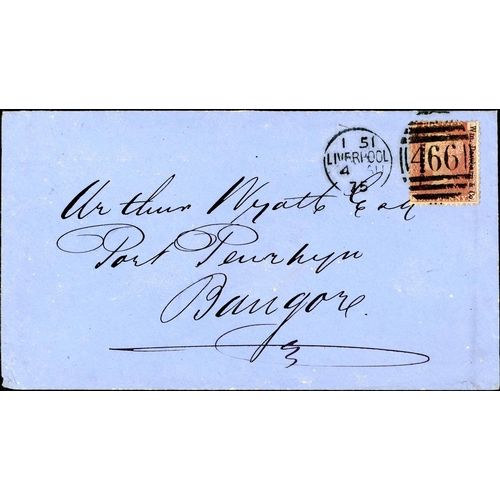 1 51
LIVERPOOL
4
75
466
Arthur Wyatt Esq
Port Penrhyn
Bangor.